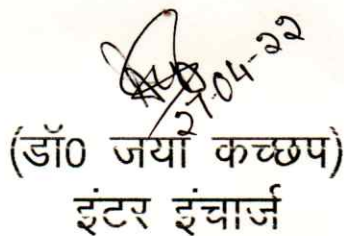 27-04-22
(डॉ0 जया कच्छप)
इंटर इंचार्ज